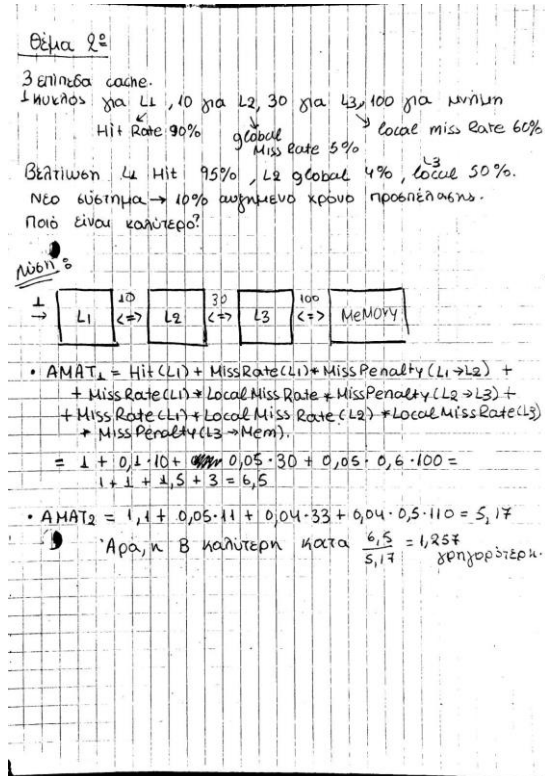 Θέμα 2º
3 επίπεδα cache.
1 κύκλος για L1, 10 για L2, 30 για L3, 100 για μνήμη
Hit Rate 90%
global Miss Rate 5%
local miss Rate 60%
Βελτίωση L1 Hit 95%, L2 global 4%, L3 local 50%.
Νέο σύστημα → 10% αυξημένο χρόνο προσπέλασης.
Ποιό είναι καλύτερο?
Λύση:
1 → L1 10 <=> L2 30 <=> L3 100 <=> MeMOVY
• AMAT1 = Hit(L1) + MissRate(L1) * MissPenalty(L1→L2) +
+ MissRate(L1) * LocalMissRate * MissPenalty(L2→L3) +
+ MissRate(L1) * LocalMissRate(L2) * LocalMissRate(L3)
* MissPenalty(L3→Mem).
= 1 + 0,1·10 + 0,05·30 + 0,05·0,6·100 =
1 + 1 + 1,5 + 3 = 6,5
• AMAT2 = 1,1 + 0,05·11 + 0,04·33 + 0,04·0,5·110 = 5,17
Άρα, η Β καλύτερη κατα 6,5/5,17 = 1,257 γρηγορότερη.